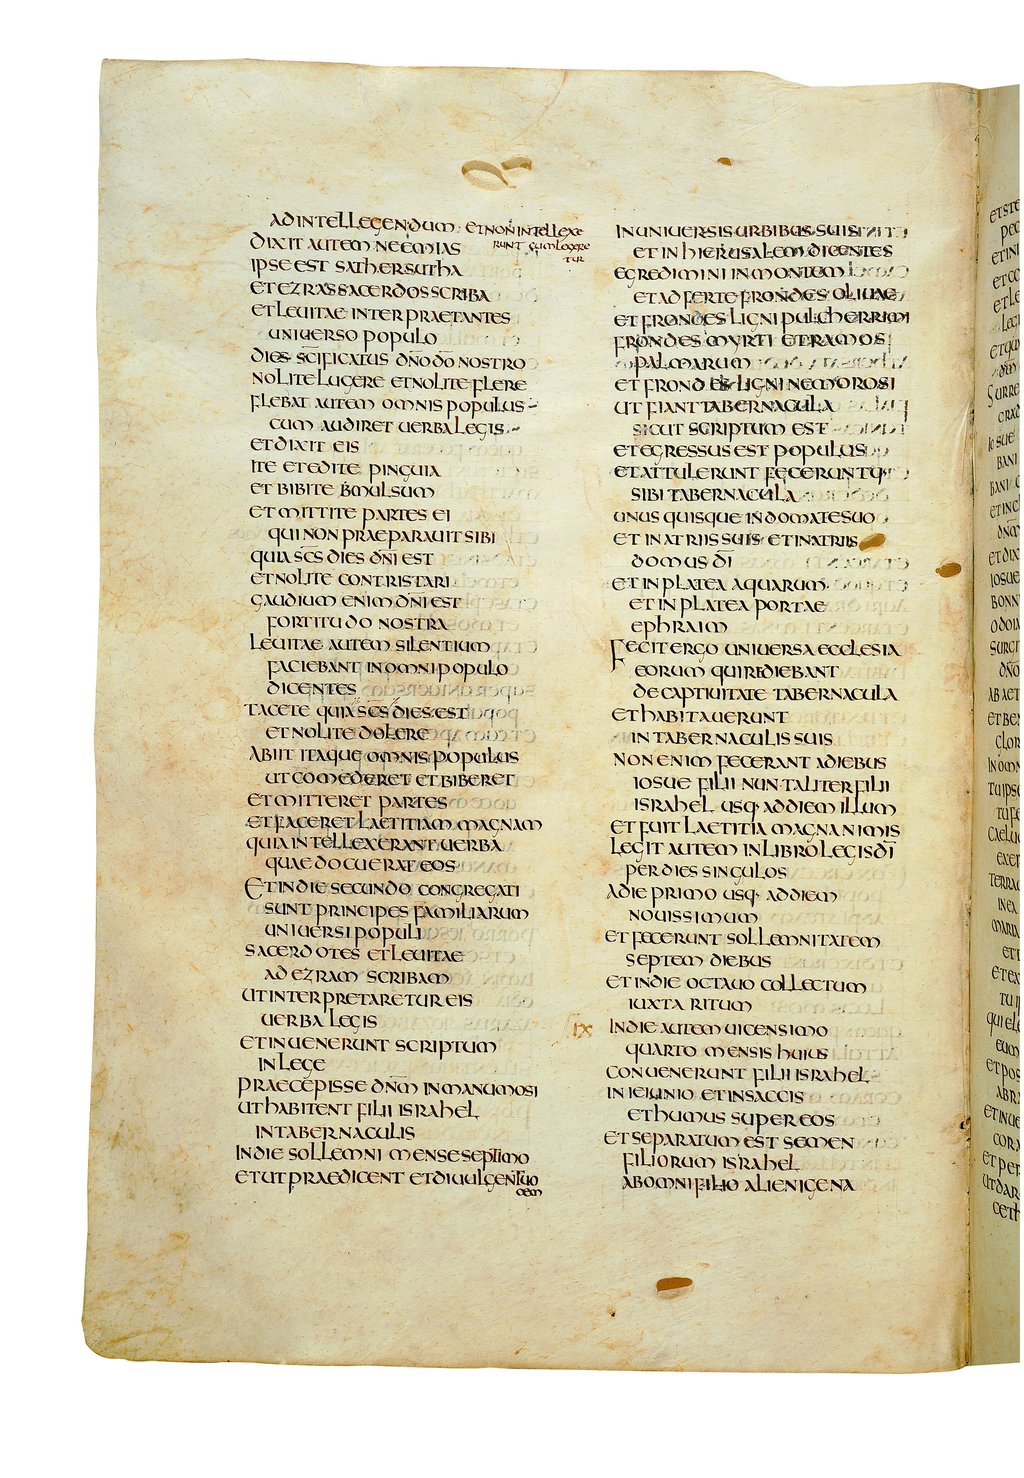 AD INTELLEGENDUM · ET NON INTELLEXE
RUNT CUM LEGERE
TUR
DIXIT AUTEM NEEMIAS
IPSE EST SATHERSUTHA
ET EZRAS SACERDOS SCRIBA
ET LEUITAE INTERPRAETANTES
UNIUERSO POPULO
DIES SC̄IFICATUS DN̄O DŌ NOSTRO
NOLITE LUGERE ET NOLITE FLERE
FLEBAT AUTEM OMNIS POPULUS
CUM AUDIRET UERBA LEGIS
ET DIXIT EIS
ITE ET EDITE PINGUIA
ET BIBITE MULSUM
ET MITTITE PARTES EI
QUI NON PRAEPARAUIT SIBI
QUIA SC̄S DIES DN̄I EST
ET NOLITE CONTRISTARI
GAUDIUM ENIM DN̄I EST
FORTITUDO NOSTRA
LEUITAE AUTEM SILENTIUM
FACIEBANT IN OMNI POPULO
DICENTES
TACETE QUIA SC̄S DIES EST
ET NOLITE DOLERE
ABIIT ITAQUE OMNIS POPULUS
UT COMEDERET ET BIBERET
ET MITTERET PARTES
ET FACERET LAETITIAM MAGNAM
QUIA INTELLEXERANT UERBA
QUAE DOCUERAT EOS
ET IN DIE SECUNDO CONGREGATI
SUNT PRINCIPES FAMILIARUM
UNIUERSI POPULI
SACERDOTES ET LEUITAE
AD EZRAM SCRIBAM
UT INTERPRETARETUR EIS
UERBA LEGIS
ET INUENERUNT SCRIPTUM
IN LEGE
PRAECEPISSE DN̄M IN MANU MOSI
UT HABITENT FILII ISRAHEL
IN TABERNACULIS
IN DIE SOLLEMNI MENSE SEPTIMO
ET UT PRAEDICENT ET DIUULGENT UO
CEM
IN UNIUERSIS URBIBUS SUIS
ET IN HIERUSALEM DICENTES
EGREDIMINI IN MONTEM
ET ADFERTE FRONDES OLIUAE
ET FRONDES LIGNI PULCHERRIMI
FRONDES MYRTI ET RAMOS
PALMARUM
ET FRONDES LIGNI NEMOROSI
UT FIANT TABERNACULA
SICUT SCRIPTUM EST
ET EGRESSUS EST POPULUS
ET ATTULERUNT FECERUNTQ·
SIBI TABERNACULA
UNUSQUISQUE IN DOMATE SUO
ET IN ATRIIS SUIS ET IN ATRIIS
DOMUS DĪ
ET IN PLATEA AQUARUM
ET IN PLATEA PORTAE
EPHRAIM
FECIT ERGO UNIUERSA ECCLESIA
EORUM QUI REDIEBANT
DE CAPTIUITATE TABERNACULA
ET HABITAUERUNT
IN TABERNACULIS SUIS
NON ENIM FECERANT A DIEBUS
IOSUE FILII NUN TALITER FILII
ISRAHEL USQ· AD DIEM ILLUM
ET FUIT LAETITIA MAGNA NIMIS
LEGIT AUTEM IN LIBRO LEGIS DĪ
PER DIES SINGULOS
A DIE PRIMO USQ· AD DIEM
NOUISSIMUM
ET FECERUNT SOLLEMNITATEM
SEPTEM DIEBUS
ET IN DIE OCTAUO COLLECTUM
IUXTA RITUM
IX IN DIE AUTEM UICENSIMO
QUARTO MENSIS HUIUS
CONUENERUNT FILII ISRAHEL
IN IEIUNIO ET IN SACCIS
ET HUMUS SUPER EOS
ET SEPARATUM EST SEMEN
FILIORUM ISRAHEL
AB OMNI FILIO ALIENIGENA